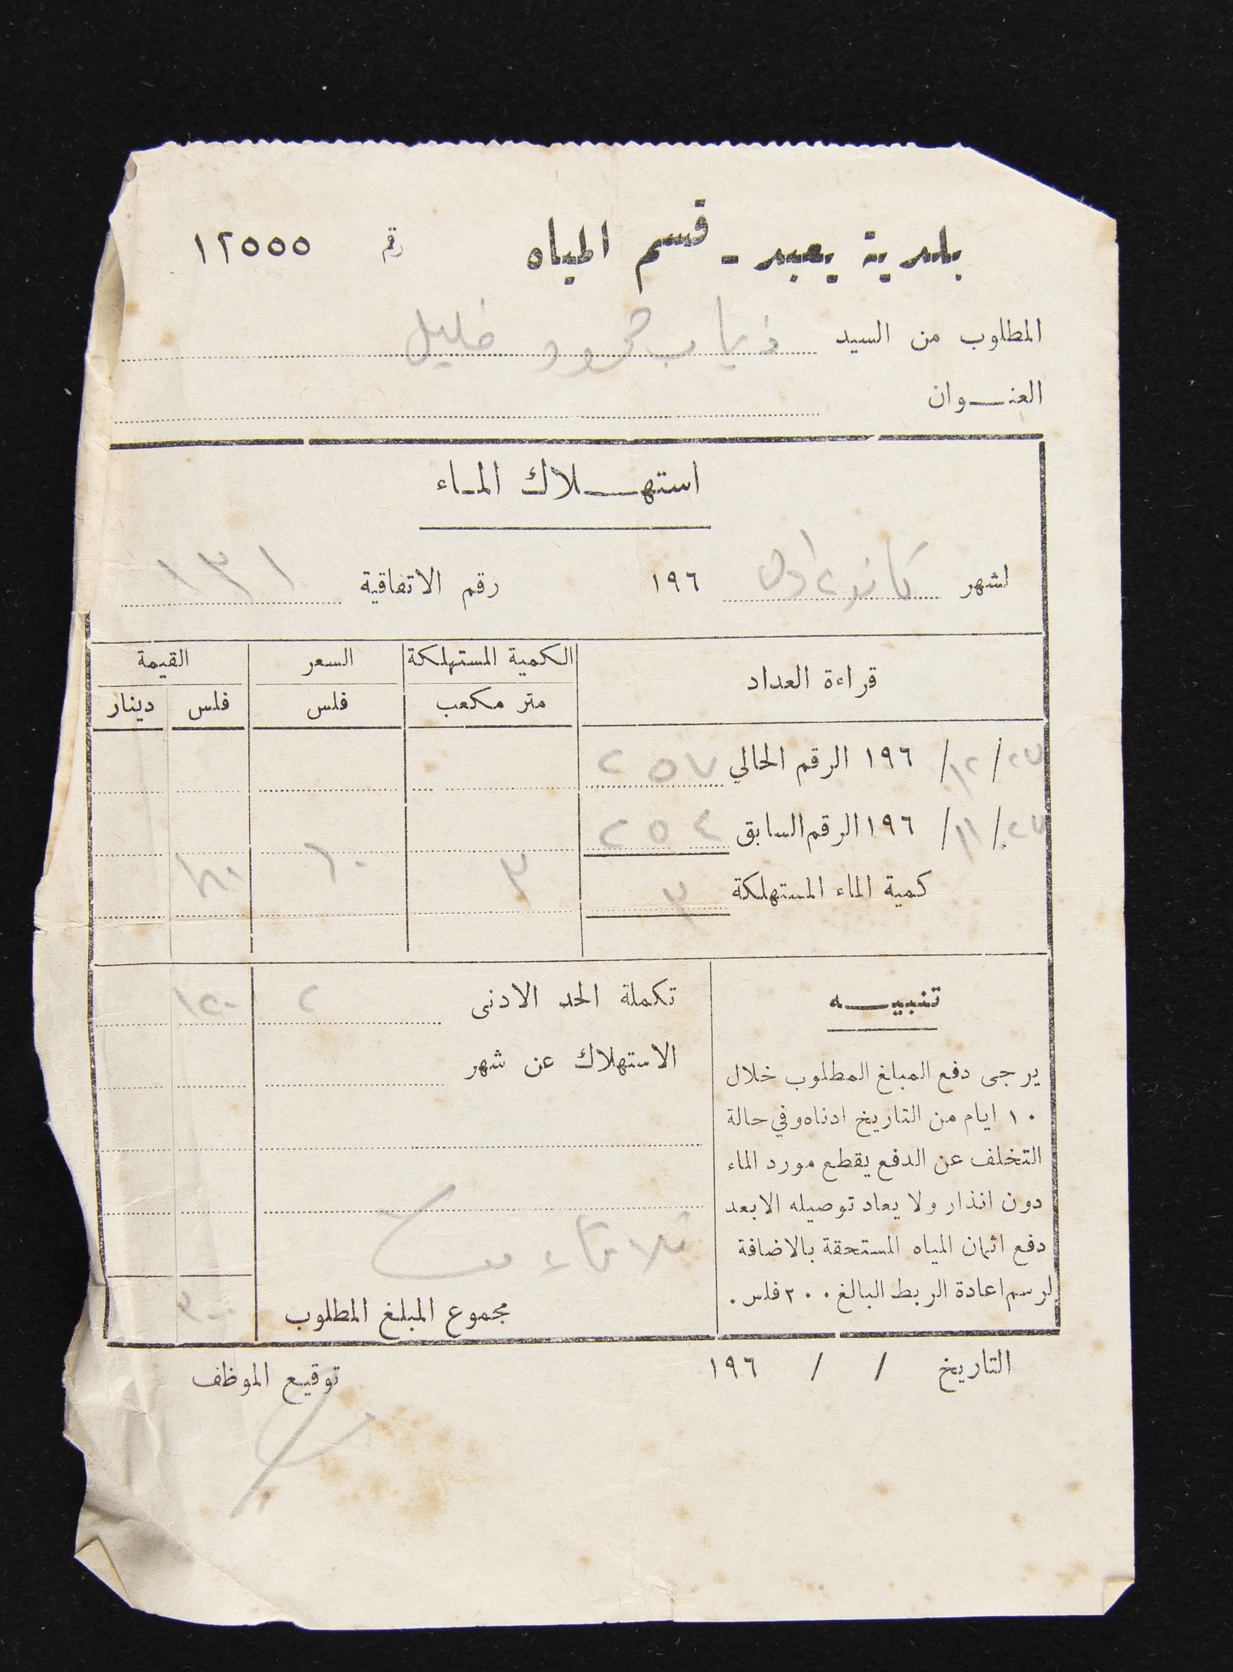 بلدية يعبد - قسم المياه رقم ١٢٥٥٥
المطلوب من السيد ذياب حمرود خليل
العنـــوان
استهـــلاك المـاء
لشهر كانون اول ١٩٦ رقم الاتفاقية ١٣١
قراءة العداد الكمية المستهلكة السعر القيمة
متر مكعب فلس فلس دينار
٢٧/ ١٢/ ١٩٦ الرقم الحالي ٢٥٧
٢٧/ ١١/ ١٩٦ الرقم السابق ٢٥٤
كمية الماء المستهلكة ٣ ٣ ٦٠ ١٨٠
تنبيـــه
يرجى دفع المبلغ المطلوب خلال
١٠ ايام من التاريخ ادناه وفي حالة
التخلف عن الدفع يقطع مورد الماء
دون انذار ولا يعاد توصيله الا بعد
دفع اثمان المياه المستحقة بالاضافة
لرسم اعادة الربط البالغ ٢٠٠ فلس.
تكملة الحد الادنى ٢ ١٢٠
الاستهلاك عن شهر
ثلاثماية فلس
مجموع المبلغ المطلوب ٣٠٠
التاريخ / / ١٩٦
توقيع الموظف